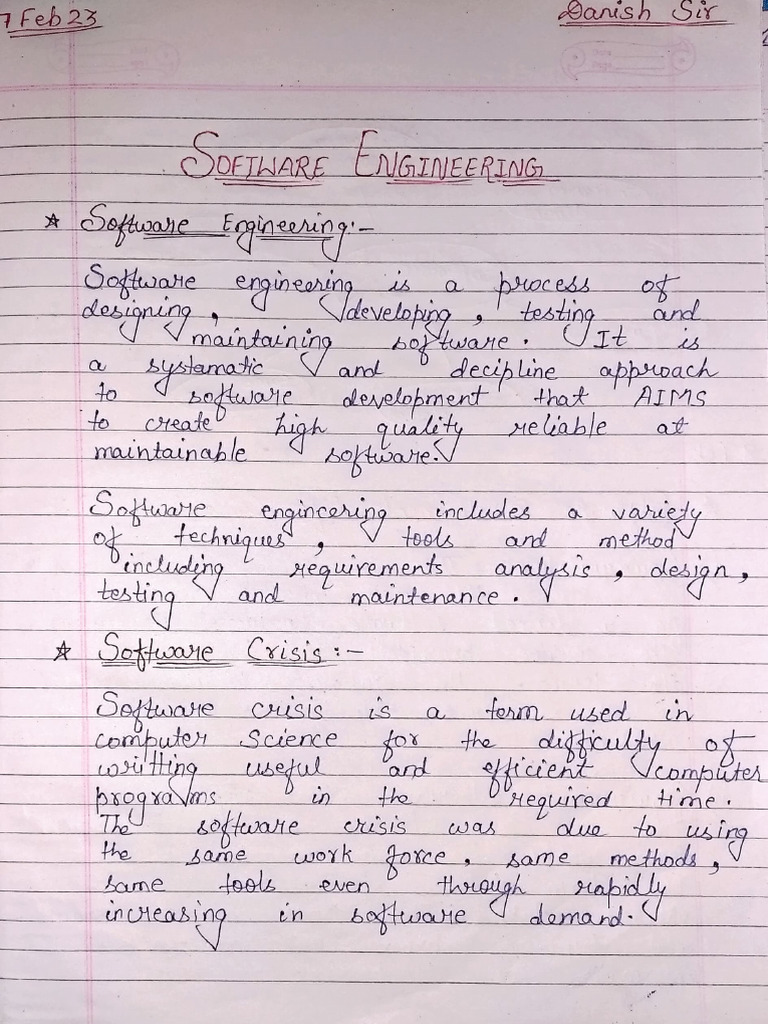 7 Feb 23
Danish Sir
SOFTWARE ENGINEERING
☆ Software Engineering:-
Software engineering is a process of
designing, developing, testing and
maintaining software. It is
a systematic and decipline approach
to software development that AIMS
to create high quality reliable at
maintainable software.
Software engineering includes a variety
of techniques, tools and method
including requirements analysis, design,
testing and maintenance.
☆ Software Crisis:-
Software crisis is a term used in
computer Science for the difficulty of
writting useful and efficient computer
programs in the required time.
The software crisis was due to using
the same work force, same methods,
same tools even through rapidly
increasing in software demand.